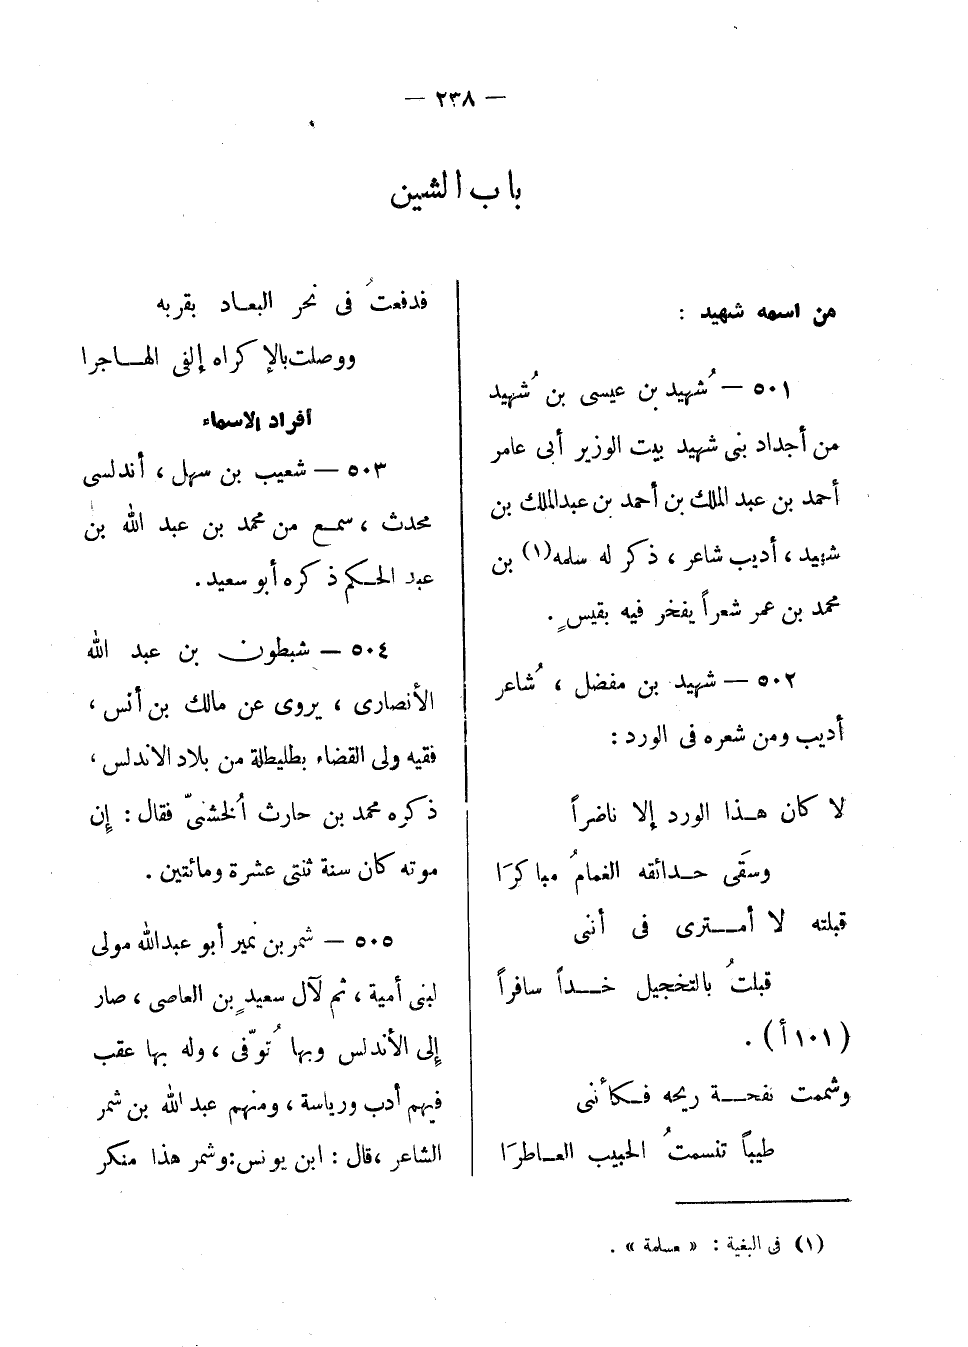 — ٢٣٨ —
باب الشين
من اسمه شهيد :
٥٠١ — شُهيد بن عيسى بن شُهيد
من أجداد بنى شهيد بيت الوزير أبى عامر
أحمد بن عبد الملك بن أحمد بن عبدالملك بن
شهيد ، أديب شاعر ، ذكر له سلمه(١) بن
محمد بن عمر شعراً يفخر فيه بقيسٍ .
٥٠٢ — شهيد بن مفضل ، شُاعر
أديب ومن شعره فى الورد :
لا كان هـذا الورد إلا ناضراً
وسَقى حـدائقه الغمامُ مباكرَا
قبلته لا أمـترى فى أننى
قبلتُ بالتخجيل خـداً سافراً
(١٠١ أ) .
وشممت نفحـة ريحه فـكأننى
طيباً تنسمتُ الحبيب العـاطرَا
(١) فى البغية : « مسلمة » .
فدفعتُ فى نحر البعـاد بقربه
ووصلت بالإكراه إلفى الهـاجرا
أفراد الاسماء
٥٠٣ — شعيب بن سهل ، أندلسى
محدث ، سمـع من محمد بن عبد الله بن
عبد الحـكم ذكره أبو سعيد .
٥٠٤ — شبطون بن عبد الله
الأنصارى ، يروى عن مالك بن أنس ،
فقيه ولى القضاء بطليطلة من بلاد الاندلس ،
ذكره محمد بن حارث الُخشنىّ فقال : إن
موته كان سنة ثنتى عشرة ومائتين .
٥٠٥ — شمر بن نمير أبو عبدالله مولى
لبنى أمية ، ثم لآل سعيدٍ بن العاصى ، صار
إلى الأندلس وبها تُوّفى ، وله بها عقب
فيهم أدب ورياسة ، ومنهم عبد الله بن شمر
الشاعر ، قال : ابن يونس: وشمر هذا منكر